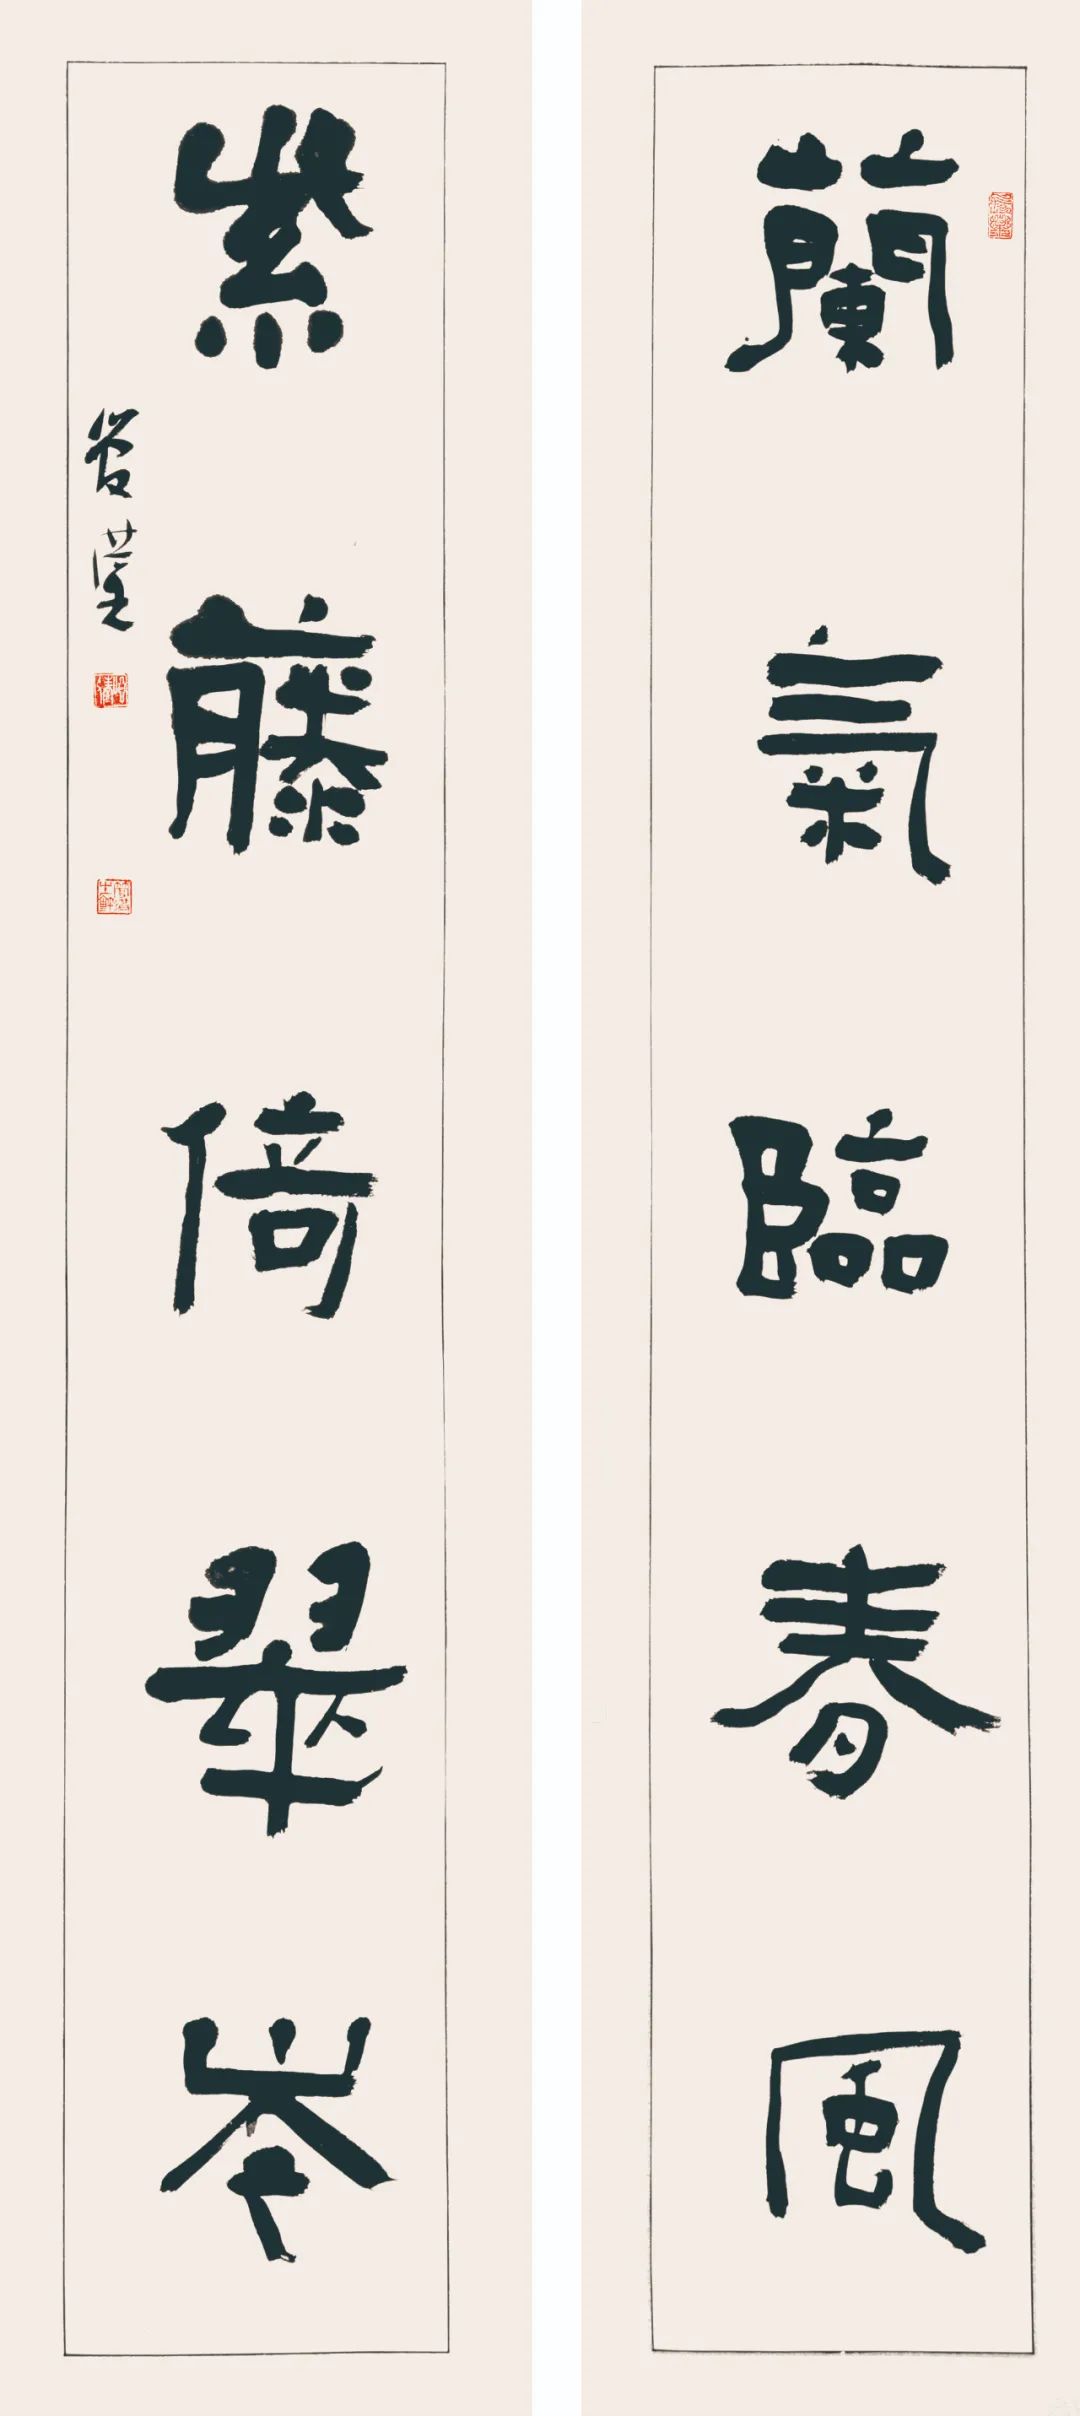 蘭氣臨春風
紫藤倚翠岑